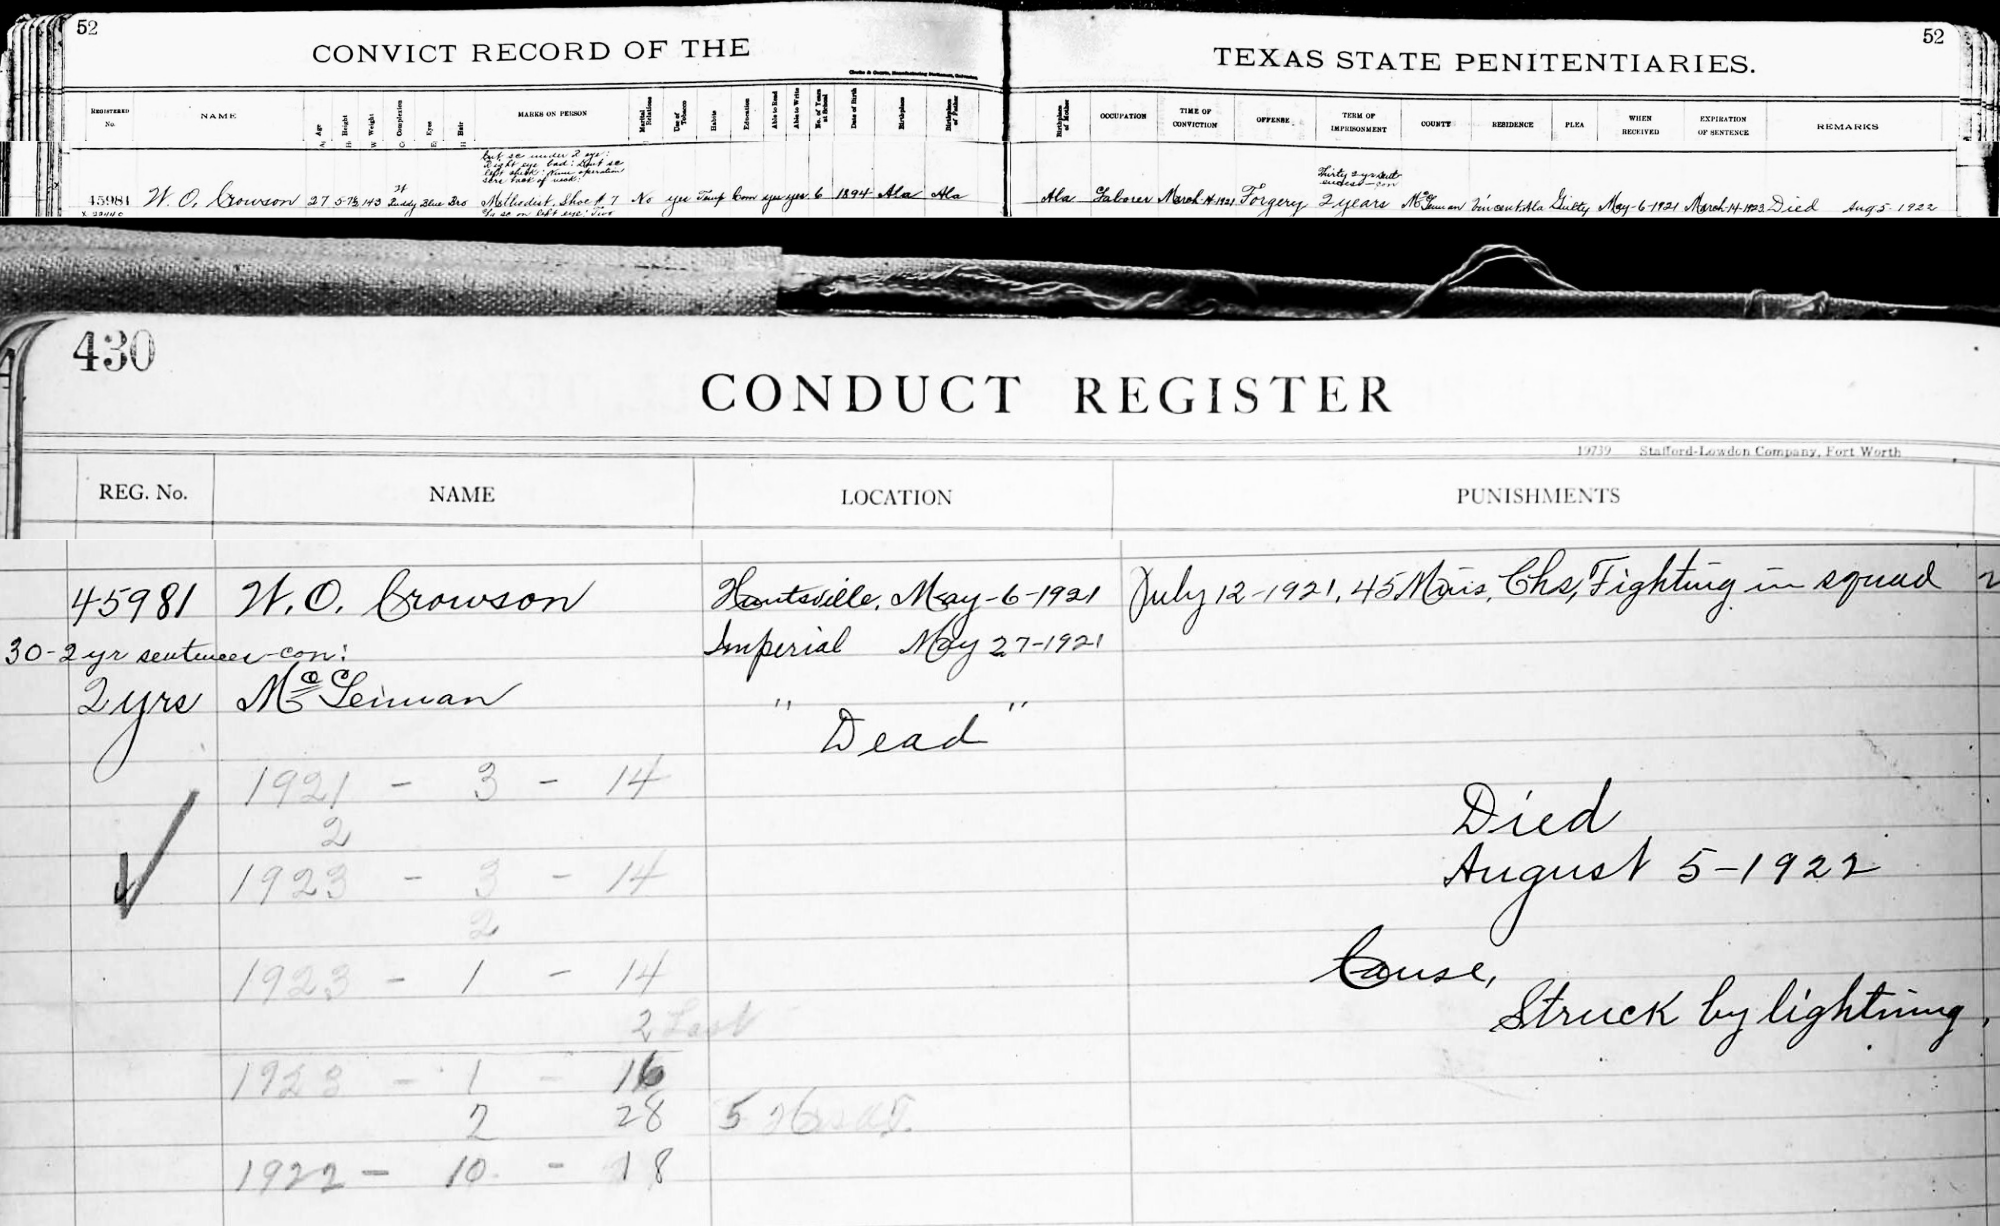 52
52
CONVICT RECORD OF THE
TEXAS STATE PENITENTIARIES.
REGISTERED No. NAME Age Height Weight Complexion Eyes Hair MARKS ON PERSON Marital Relations Use of Tobacco Habits Education Able to Read Able to Write No. of Years at School Date of Birth Birthplace Birthplace of Father Birthplace of Mother OCCUPATION TIME OF CONVICTION OFFENSE TERM OF IMPRISONMENT COUNTY RESIDENCE PLEA WHEN RECEIVED EXPIRATION OF SENTENCE REMARKS
Cut sc under 2 eye:
Right eye bad: Cut sc
left cheek:
back of neck:
Thirty 2 yr sent
45981 W. O. Crowson 27 5-7½ 143 Ruddy Blue Bro Methodist. Shoe # 7 No yes Temp Com yes yes 6 1894 Ala Ala Ala Laborer March-14-1921 Forgery 2 years McLennan Vincent Ala Guilty May-6-1921 March-14-1923 Died Aug 5-1922
sc on left eye: Two
430
CONDUCT REGISTER
19739 Stafford-Lowdon Company, Fort Worth
REG. No. NAME LOCATION PUNISHMENTS
45981 W. O. Crowson Huntsville, May-6-1921 July 12-1921, 45 Mins, Chs, Fighting in squad
30-2 yr sentences-con: Imperial May 27-1921
2 yrs McLennan " "
Dead
1921 - 3 - 14
2
1923 - 3 - 14
2
1923 - 1 - 14
2 Last
1923 - 1 - 16
2 28 5
1922 - 10 - 18
Died
August 5-1922
Cause,
Struck by lightning,